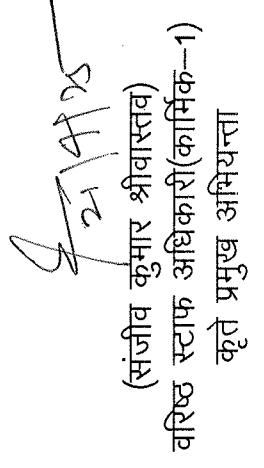 (संजीव कुमार श्रीवास्तव)
वरिष्ठ स्टाफ अधिकारी(कार्मिक–1)
कृते प्रमुख अभियन्ता